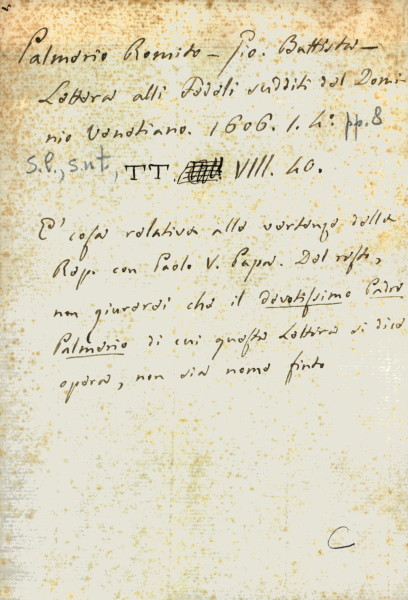 Palmerio Romito – Gio. Battista –
Lettera alli Fedeli sudditi del Domi-
nio Venetiano. 1606. 1. 4.° pp. 8
s.l., s.nt, TT. VIII. 40.
E' cosa relativa alla vertenza della
Rep. con Paolo V. Papa. Del resto,
non giurerei che il devotissimo Padre
Palmerio di cui questa Lettera si dice
opera, non sia nome finto
C